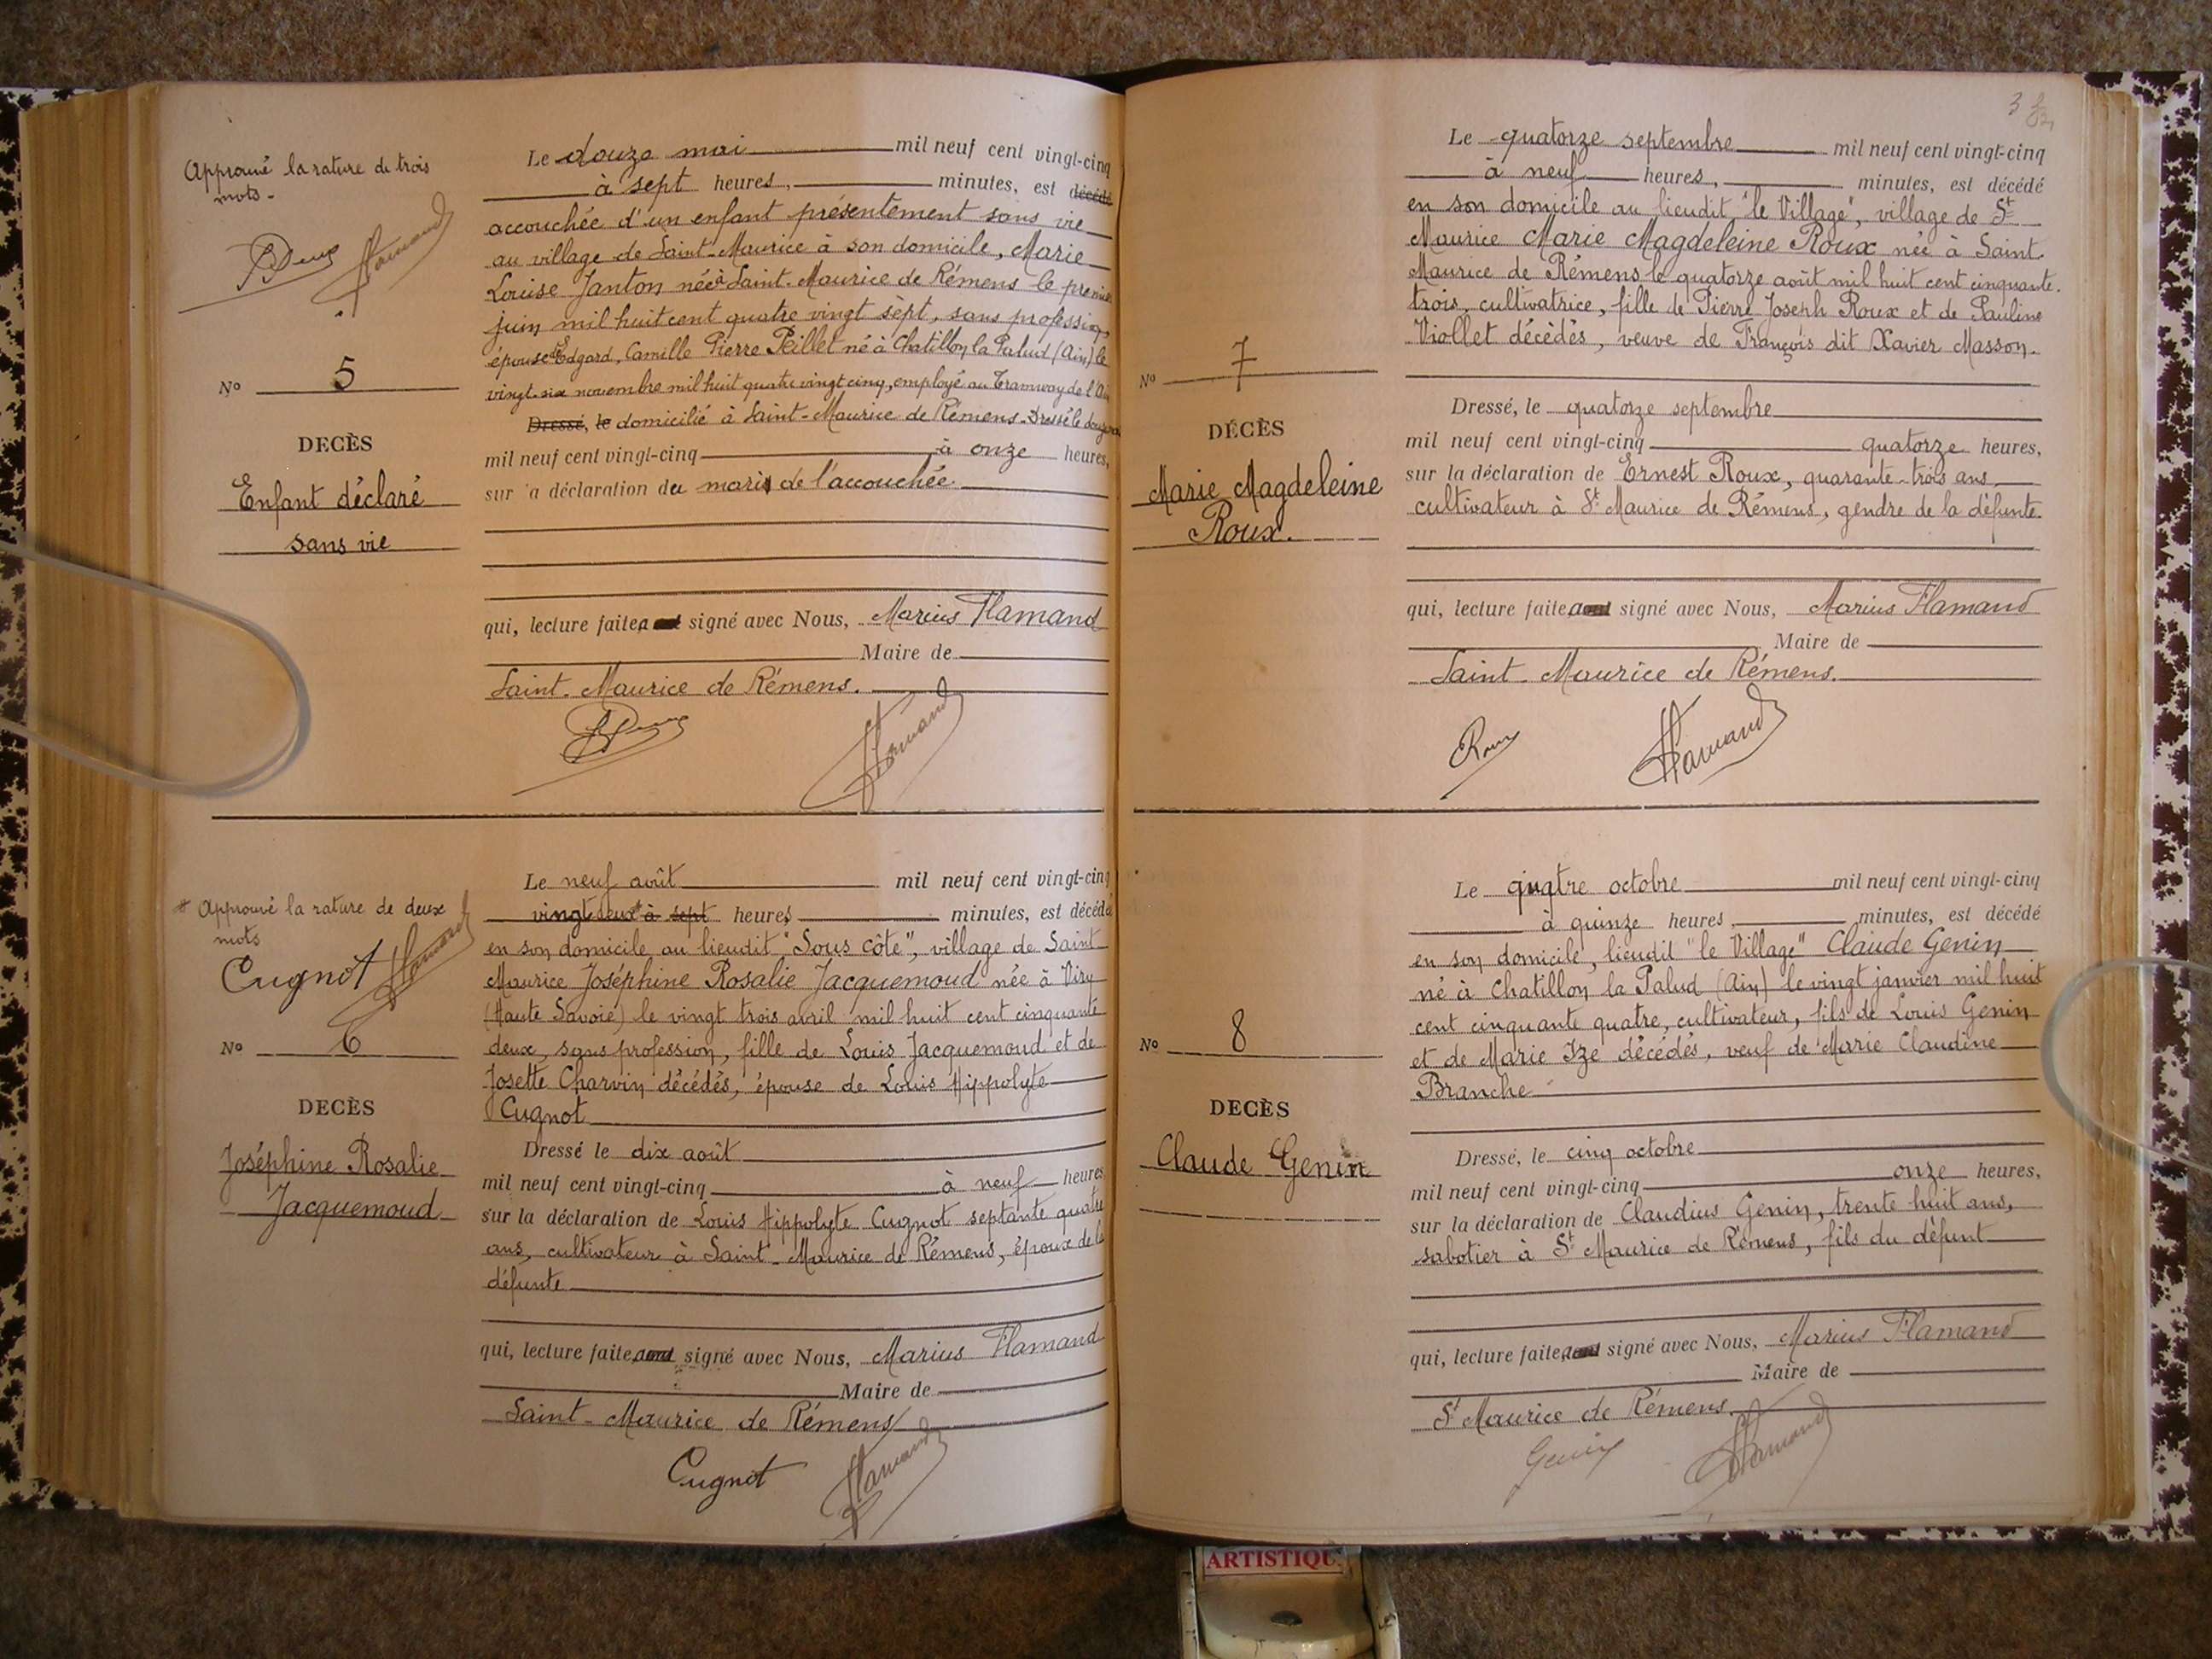 Approuvé la rature de trois
mots -
Flamand
Le douze mai mil neuf cent vingt-cinq
à sept heures, minutes, est décédé
accouchée d'un enfant présentement sans vie
au village de Saint-Maurice à son domicile, Marie
Louise Janton née à Saint-Maurice de Rémens le premier
juin mil huit cent quatre vingt sept, sans profession,
épouse d'Edgard, Camille Pierre Peillet né à Chatillon la Palud (Ain) le
vingt-six novembre mil huit quatre vingt cinq, employé au Tramway de l'Ain
Dressé, le domicilié à Saint-Maurice de Rémens. Dressé le douze
mil neuf cent vingt-cinq à onze heures,
sur a déclaration du mari de l'accouchée.
qui, lecture faite a signé avec Nous, Marius Flamand
Maire de
Saint-Maurice de Rémens.
Flamand
No 5
DECÈS
Enfant déclaré
sans vie
* Approuvé la rature de deux
mots
Cugnot Flamand
No 6
DECÈS
Joséphine Rosalie
Jacquemoud
Le neuf août mil neuf cent vingt-cinq
vingt deux* à sept heures minutes, est décédé
en son domicile au lieudit "Sous côte", village de Saint
Maurice Joséphine Rosalie Jacquemoud née à Viry
(Haute Savoie) le vingt trois avril mil huit cent cinquante
deux, sans profession, fille de Louis Jacquemoud et de
Josette Charvin décédés, épouse de Louis Hippolyte
Cugnot
Dressé le dix août
mil neuf cent vingt-cinq à neuf heures
sur la déclaration de Louis Hippolyte Cugnot septante quatre
ans, cultivateur à Saint-Maurice de Rémens, époux de la
défunte
qui, lecture faite, a signé avec Nous, Marius Flamand
Maire de
Saint-Maurice de Rémens
Cugnot Flamand
No 7
DÉCÈS
Marie Magdeleine
Roux.
Le quatorze septembre mil neuf cent vingt-cinq
à neuf heures, minutes, est décédé
en son domicile au lieudit "le Village", village de St
Maurice Marie Magdeleine Roux née à Saint
Maurice de Rémens le quatorze août mil huit cent cinquante
trois, cultivatrice, fille de Pierre Joseph Roux et de Pauline
Viollet décédés, veuve de François dit Xavier Masson.
Dressé, le quatorze septembre
mil neuf cent vingt-cinq quatorze heures,
sur la déclaration de Ernest Roux, quarante-trois ans,
cultivateur à St Maurice de Rémens, gendre de la défunte.
qui, lecture faite, a signé avec Nous, Marius Flamand
Maire de
Saint-Maurice de Rémens.
Roux Flamand
No 8
DECÈS
Claude Genin
Le quatre octobre mil neuf cent vingt-cinq
à quinze heures, minutes, est décédé
en son domicile, lieudit "le Village" Claude Genin
né à Chatillon la Palud (Ain) le vingt janvier mil huit
cent cinquante quatre, cultivateur, fils de Louis Genin
et de Marie Ize décédés, veuf de Marie Claudine
Branche
Dressé, le cinq octobre
mil neuf cent vingt-cinq onze heures,
sur la déclaration de Claudius Genin, trente huit ans,
sabotier à St Maurice de Rémens, fils du défunt
qui, lecture faite, a signé avec Nous, Marius Flamand
Maire de
St Maurice de Rémens
Genin Flamand
ARTISTIQU